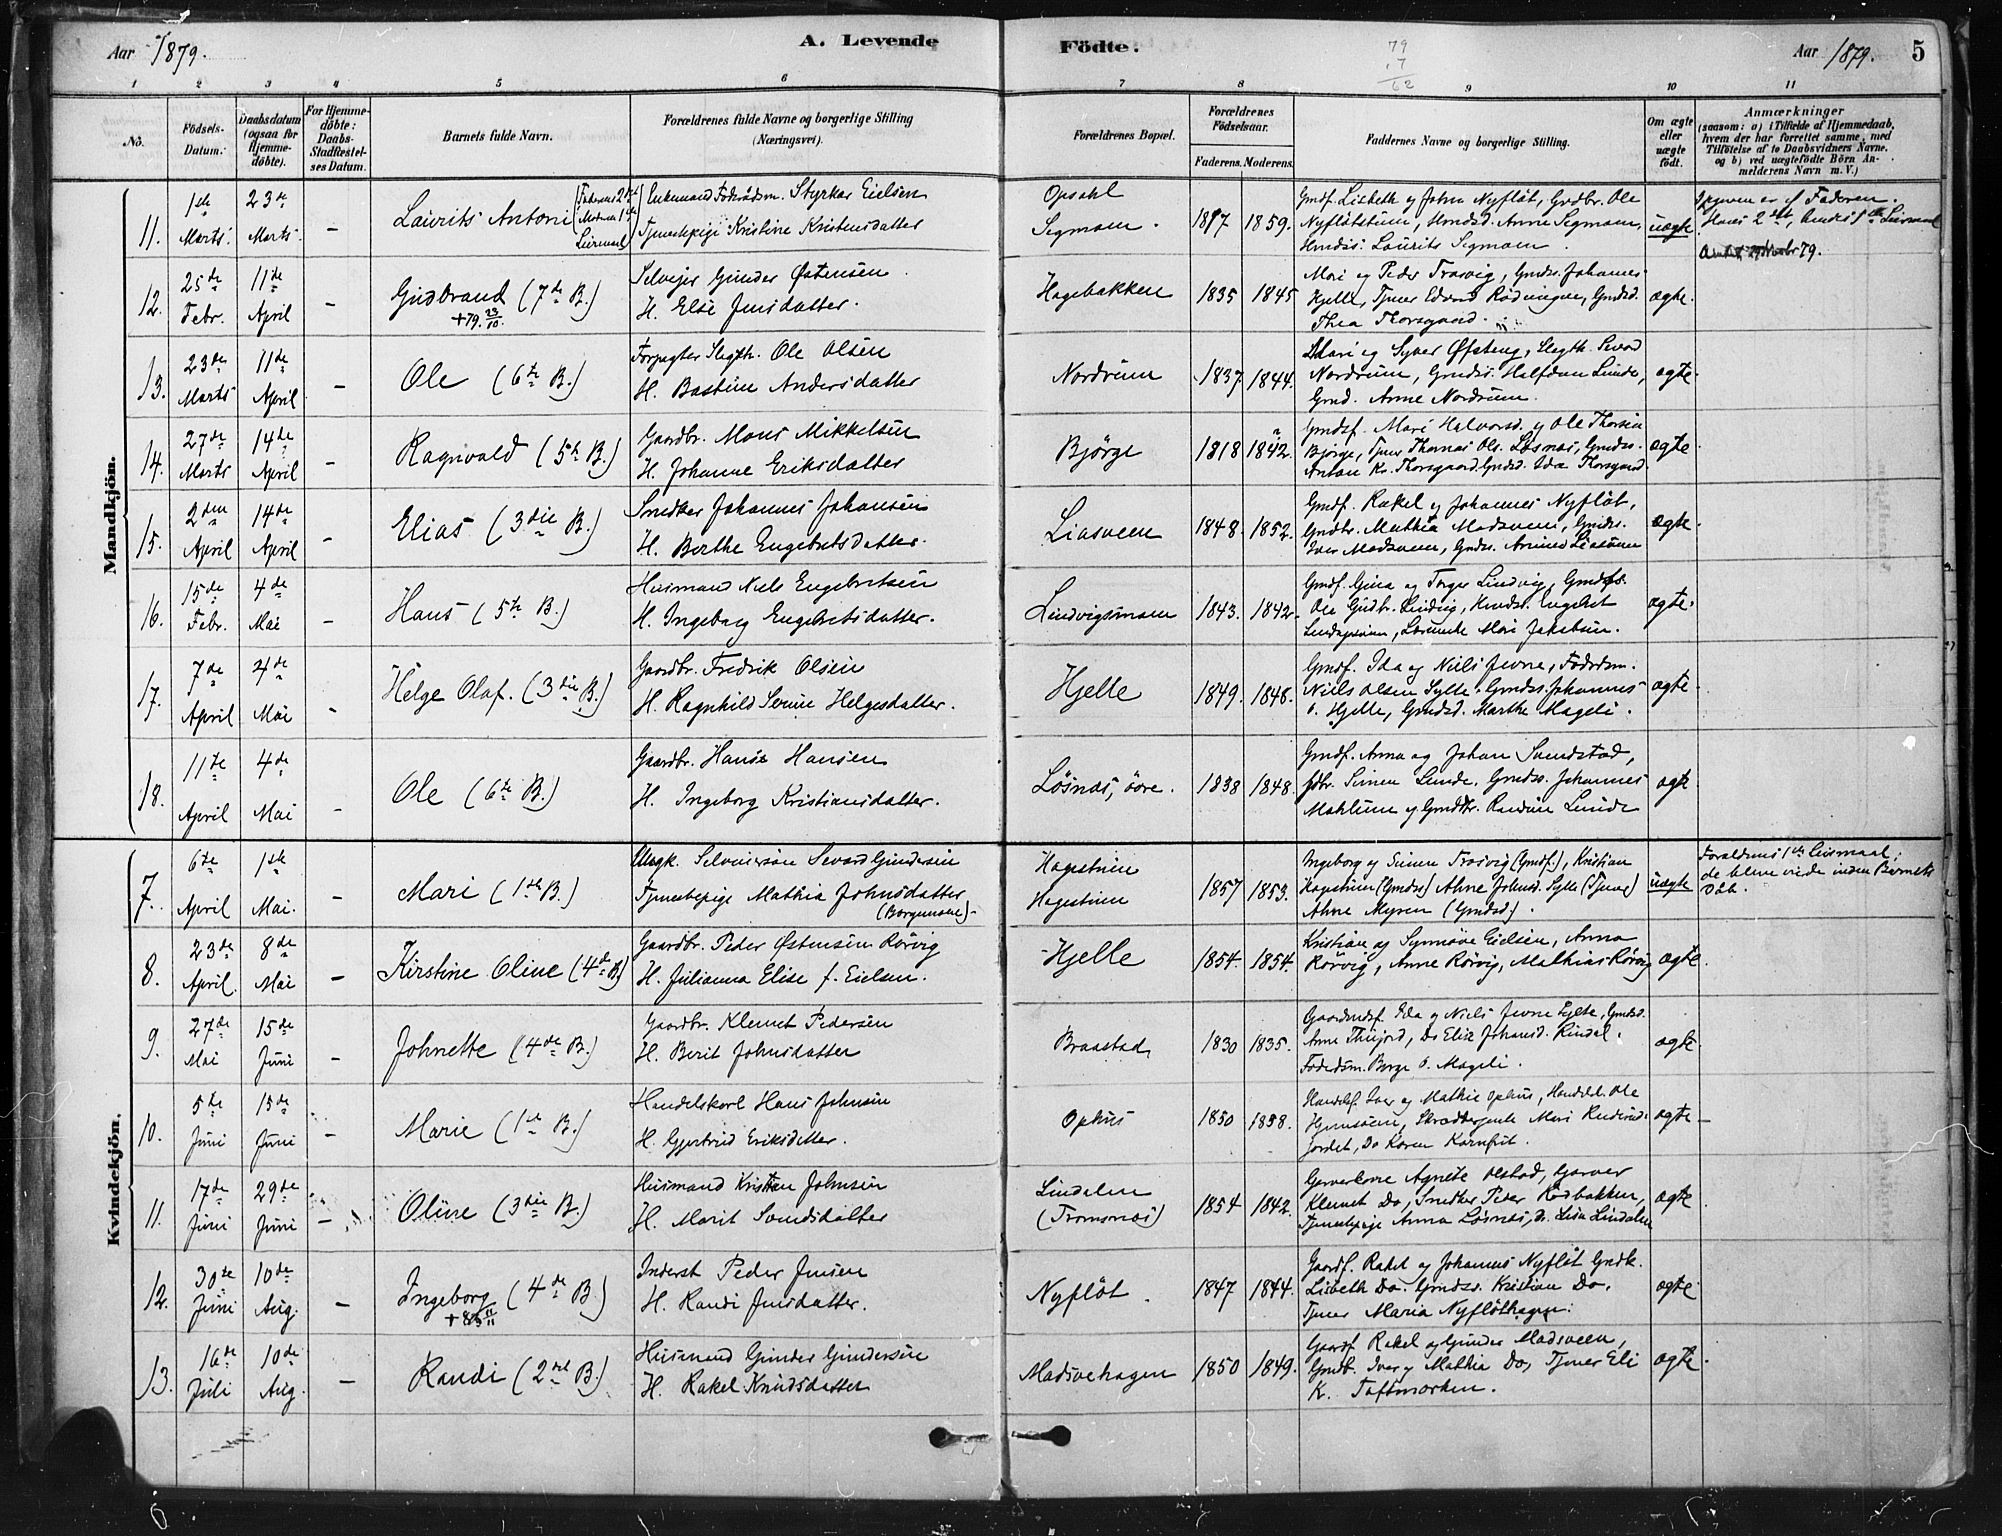 Aar 1879.
A. Levende
Födte.
79
17
62
Aar 1879.
5
1
2
3
4
5
6
7
8
9
10
11
No.
Födsels-Datum.
Daabsdatum (ogsaa for Hjemme-döbte).
For Hjemme-döbte: Daabs-Stadfæstel-ses Datum.
Barnets fulde Navn.
Forældrenes fulde Navne og borgerlige Stilling (Næringsvei).
Forældrenes Bopæl.
Forældrenes Födselsaar.
Faderens. Moderens.
Faddernes Navne og borgerlige Stilling.
Om ægte eller uægte födt.
Anmærkninger
(saasom: a) i Tilfælde af Hjemmedaab, hvem der har forrettet samme, med Tilföielse af to Daabsvidners Navne. og b) ved uægtefödte Börn An-melderens Navn m. V.)
Mandkjön.
11. 1ste Marts. 23de Marts. – Laurits Antoni (Faderens 2det Moderens 1ste Leiermaal) Enkemand Föderaadsm. Styrkar Eielsen
Tjenestepige Kristine Kristensdatter
Opsahl
Segmoen. 1817 1859.
Gmdf. Lisbeth og John Nyflöt, Grdbr. Ole
Nyflötstuen, Hmdsd. Anne Segmoen,
Hmdss. Laurits Segmoen.
uægte
Hans 2det, Andes 1ste Leiermaal
12. 25de Febr. 11de April – Gudbrand (7de B.)
+79. 23/10.
Selveier Gunder Østensen.
H. Else Jensdatter.
Hagebakken 1835 1845
Mari og Peder Trosvig, Gmdss. Johannes
Hjelle, Tjener Edvard Rødningen, Gmdsd.
Thea Thorsgaard.
ægte.
13. 23de Marts 11de April – Ole (6te B.)
Forpagter Ole Olsen
H. Bastine Andersdatter
Nordrum 1837. 1844.
Mari og Syver Øfsteng, Ungk. Sevard
Nordrum, Gmdss. Halfdan Lunde,
Gmd. Anne Nordrum.
ægte.
14. 27de Marts 14de April – Ragnvald (5te B.)
Gaardbr. Mons Mikkelsen
H. Johanne Eriksdatter
Bjørge 1818 1842.
Gmdsf. Mari Halvorsd. og Ole Thorsen
Bjørge, Tjener Thomas Ols. Løsnæs, Gmdss.
Anton Kr. Thorsgaard. Gmdsd. Ida Thorsgaard.
ægte.
15. 2den April 14de April – Elias (3die B.)
Snedker Johannes Johansen
H. Berthe Engebretsdatter.
Liasveen 1848. 1852.
Gmdf. Rakel og Johannes Nyflöt,
Gmdbr. Mathia Madsveen, Gmdss.
Iver Madsveen, Gmdss. Liasveen
ægte
16. 15de Febr. 4de Mai – Hans (5te B.)
Husmand Niels Engebretsen
H. Ingeborg Engebretsdatter.
Lindvigsmoen 1843. 1842.
Gmdf. Gina og Torger Lindvig, Gmdss.
Ole Gudbr. Lindvig, Hmdss. Engebret
Mari Jakobsen.
ægte.
17. 7de April 4de Mai – Helge Olaf. (3die B.)
Gaardbr. Fredrik Olsen
H. Ragnhild Sevrine Helgesdatter.
Hjelle 1849. 1848.
Gmdf. Ida og Niels Jevne, Föderdm.
Niels Olsen Sylte. Gmdss. Johannes
O. Hjelle, Gmdsd. Marthe Mageli.
ægte
18. 11te April 4de Mai – Ole (6te B.)
Gaardbr. Hans Hansen
H. Ingeborg Kristiansdatter.
Løsnæs, övre. 1838 1848.
Gmdf. Anna og Johan Sundstad,
Gdbr. Simen Lunde. Gmdss. Johannes
Mæhlum og Gmdbr. Randine Lunde
ægte
Kvindekjön.
7. 6te April 1ste Mai. – Mari (1ste B.)
Ungk. Selveiersøn Sevard Gundersen
Tjenestepige Mathia Johnsdatter
(Borgemoen).
Hagestuen
Hagestuen 1857 1853.
Ingeborg og Simen Trosvig (Gmdf.), Kristian
Hagestuen (Gmdss.) Ahne Johnsd. Sylte (Tjener)
Ahne Myren (Gmdsd).
uægte
Forældrenes 1ste Leiermaal;
de bleve viede inden Barnets
Daab.
8. 23de April. 8de Mai – Kirstine Oline (4de B.)
Gaardbr. Peder Østensen Rörvig
H. Julianna Elise f. Eielsen.
Hjelle 1854. 1854.
Kristian og Synnöve Eielsen, Anna
Rörvig, Anne Rörvig, Mathias Rörvig
ægte.
9. 27de Mai 15de Juni – Johnette (4de B.)
Gaardbr. Klemet Pedersen
H. Berit Johnsdatter
Braastad, 1830 1835.
Gaardmdsf. Ida og Niels Jevne Sylte, Gmdsd.
Anne Do Elise Johansd. Rindal.
Föderdm. Borge O. Mageli.
ægte.
10. 5te Juni 15de Juni – Marie (1ste B.)
Handelskarl Hans Johnsen
H. Gjertrud Eriksdatter.
Ophus 1850 1858.
Handelsf. Iver og Mathie Ophus, Handelsb. Ole
Mari
jordet, Do Karen Kornfut.
ægte
11. 17de Juni 29de Juni – Oline (3die B.)
Husmand Kristian Johnsen
H. Marit Svendsdatter
Lindalen
(Tromsnæs) 1854 1842.
Garverkone Agnete Olstad, Garver
Klemet Do, Snedker Peder Rödbakken,
Tjenestepige Anna Løsnæs, Do. Lisa Lindalen
ægte
12. 30te Juni 10de Aug. – Ingeborg (4de B.)
Inderst Peder Jensen
H. Randi Jensdatter.
Nyflöt. 1847 1844.
Gaardf. Rakel og Johannes Nyflöt Gmdk.
Lisbeth Do. Gmdss. Kristian Do,
Tjener Maria Nyflöthagen.
ægte
13. 16de Juli 10de Aug. – Randi (2det B.)
Husmand Gunder Gundersen
H. Rakel Knudsdatter
Madsvehagen 1850 1849.
Gaardf. Rakel og Gunder Madsveen,
Gmdb. Iver og Mathia Do, Tjener Eli
K. Toftmorken.
ægte.